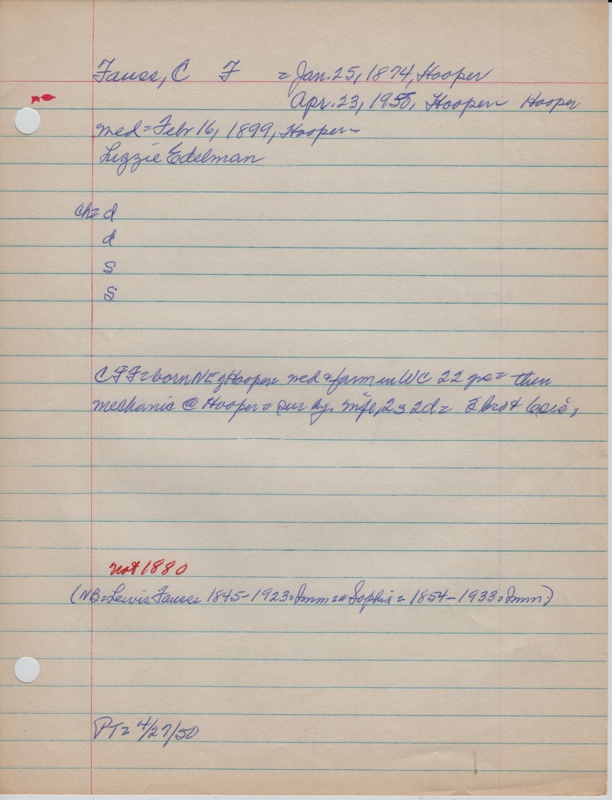 Fauss, C F = Jan. 25, 1874, Hooper
Apr. 23, 1950, Hooper Hooper
med = Febr 16, 1899, Hooper =
Lizzie Edelman
ch = d
d
S
S
CFF = born NE of Hooper = med & farm in WC 22 yrs = then
mechanic @ Hooper = sur by. wife, 2s 2d = 2 bro &
not 1880
(NB = Lewis Fauss = 1845-1923 = Imm = Sophia = 1854-1933 = Imm)
PT = 4/27/50